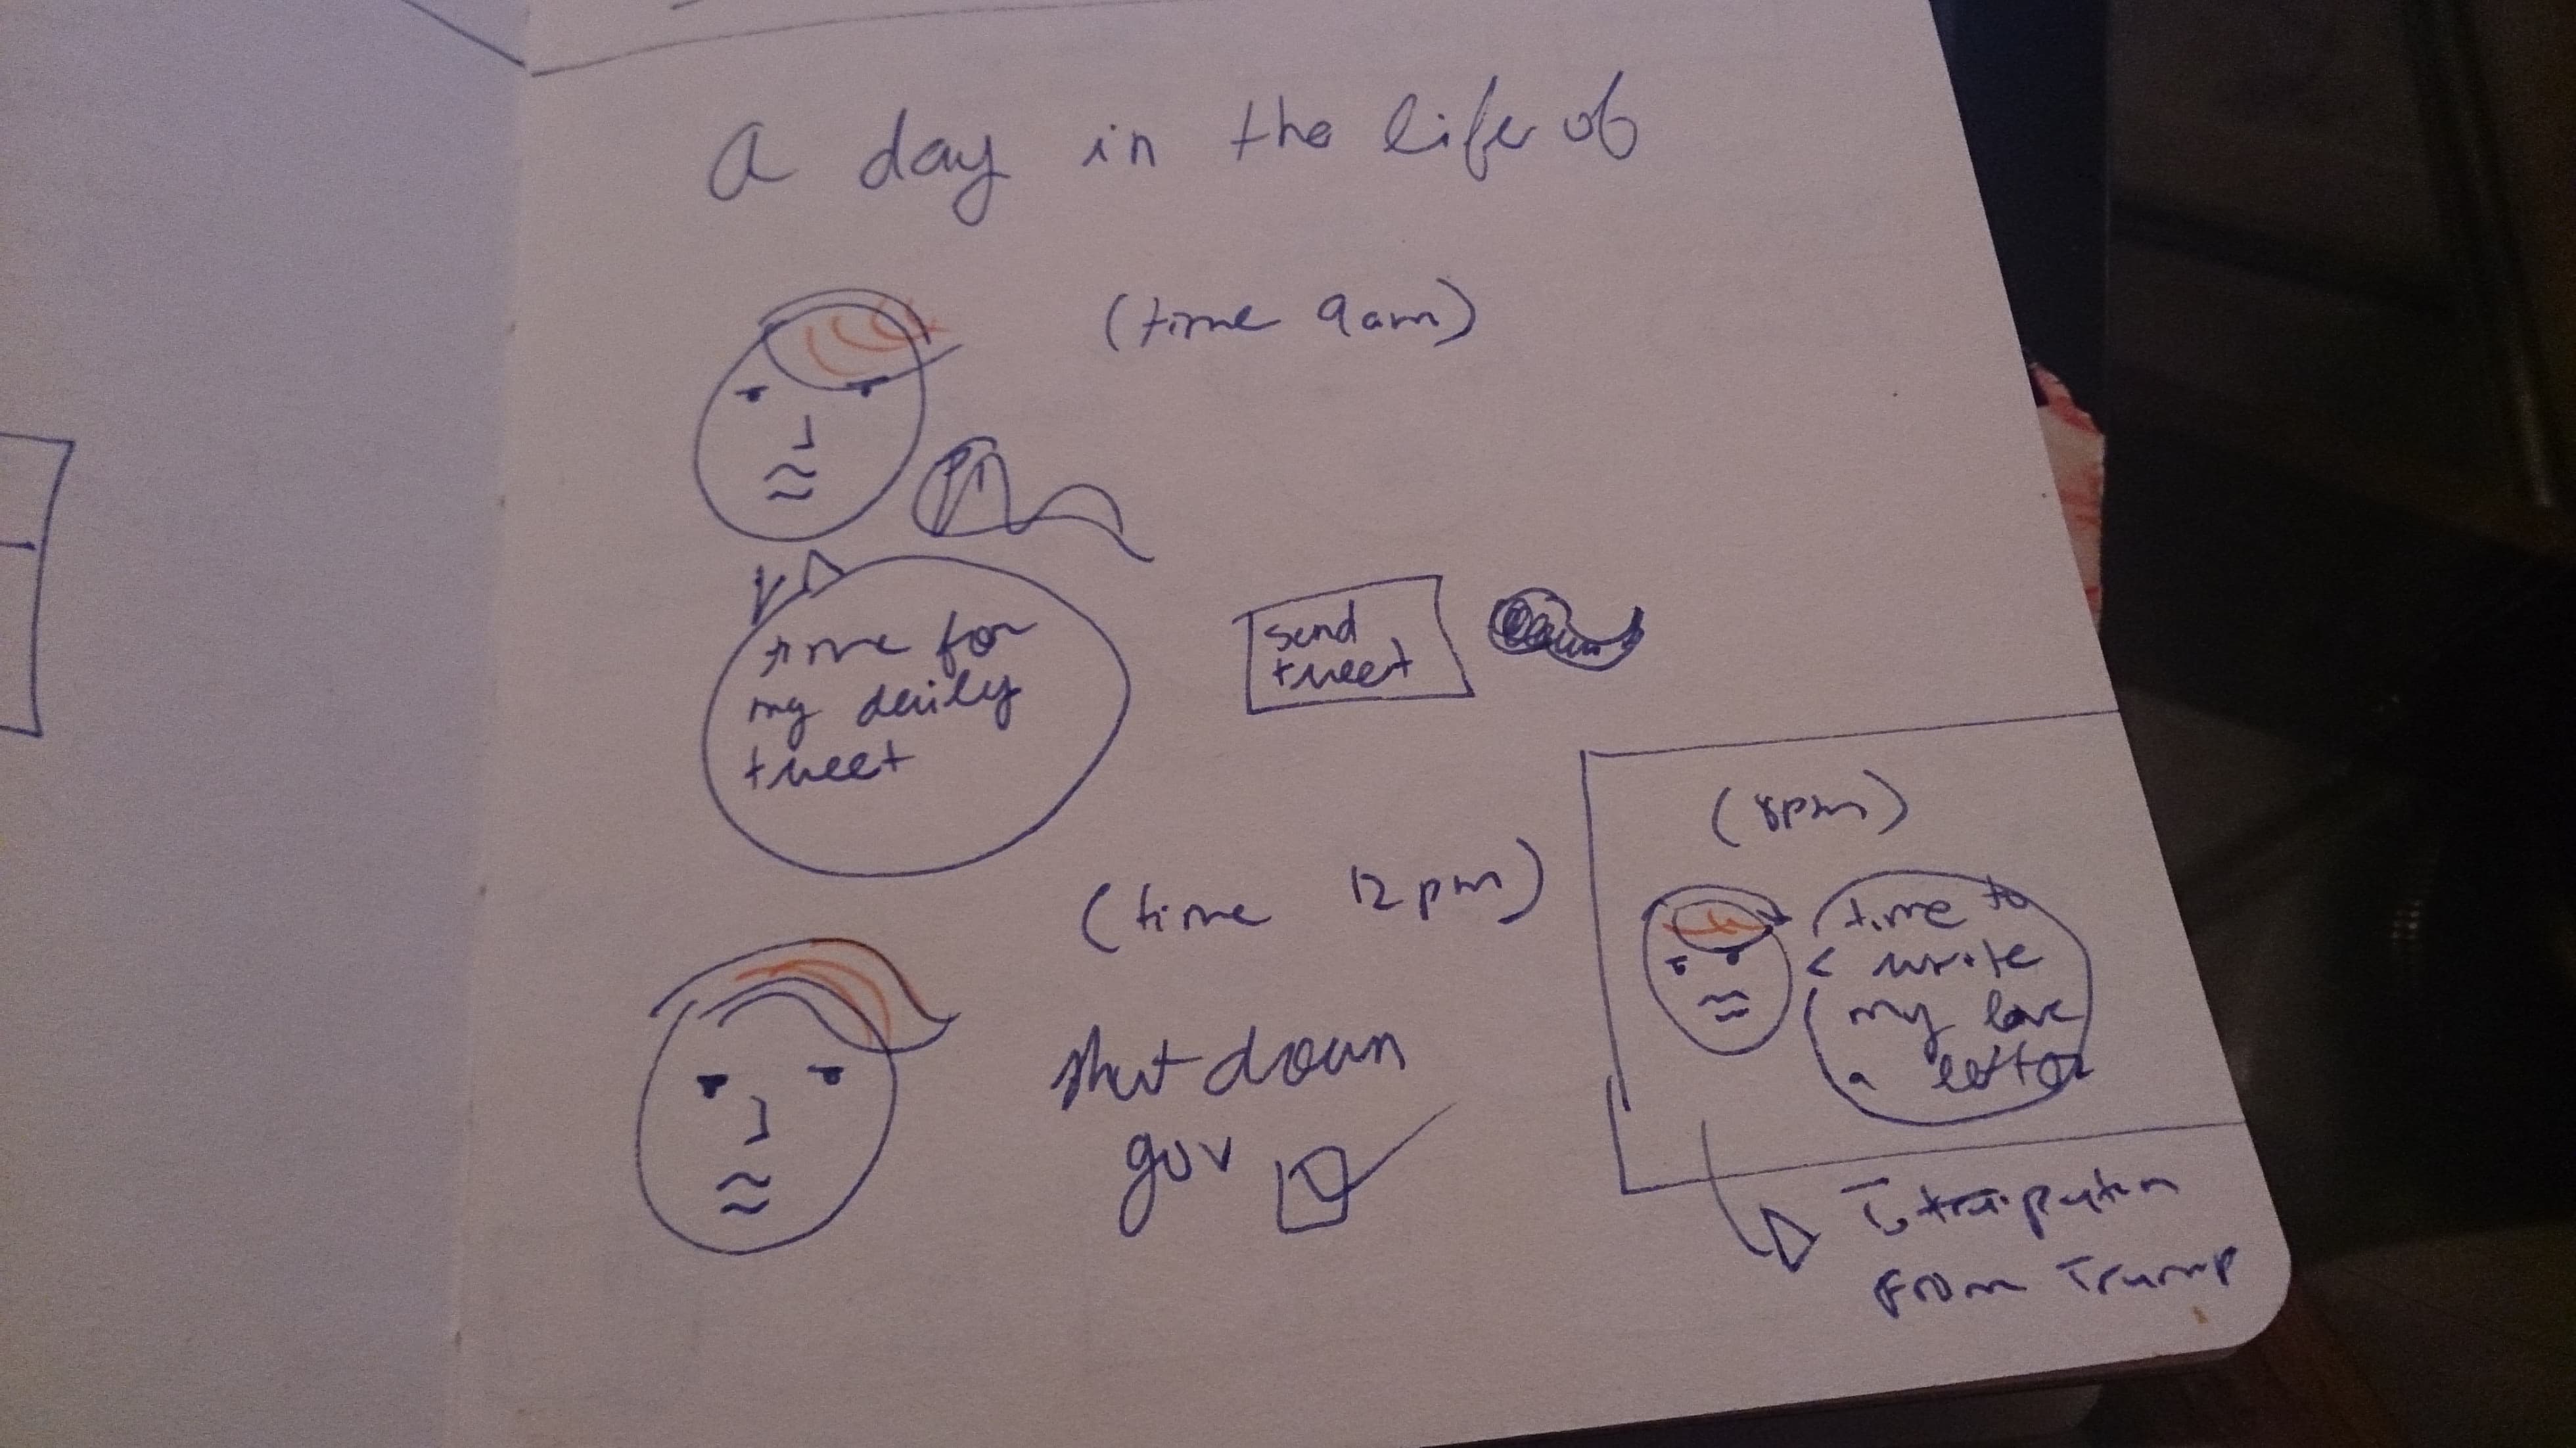 a day in the life of
(time 9am)
time for
my daily
tweet
send
tweet
(time 12pm)
shut down
gov
(8pm)
time to
write
my love
letter
from Trump